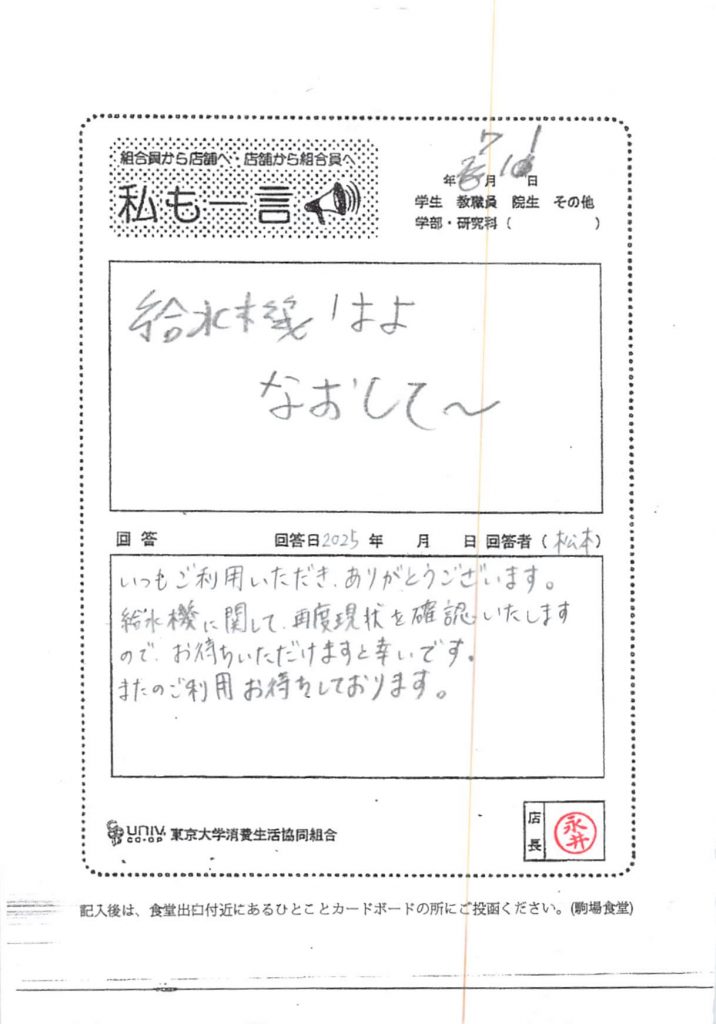 組合員から店舗へ・店舗から組合員へ
私も一言
7 1
年 月 日
学生 教職員 院生 その他
学部・研究科( )
給水機はよ
なおして〜
回答 回答日2025年 月 日 回答者(松本)
いつもご利用いただき、ありがとうございます。
給水機に関して、再度現状を確認いたします
ので、お待ちいただけますと幸いです。
またのご利用お待ちしております。
UNIV. CO-OP 東京大学消費生活協同組合
店長 永井
記入後は、食堂出口付近にあるひとことカードボードの所にご投函ください。(駒場食堂)